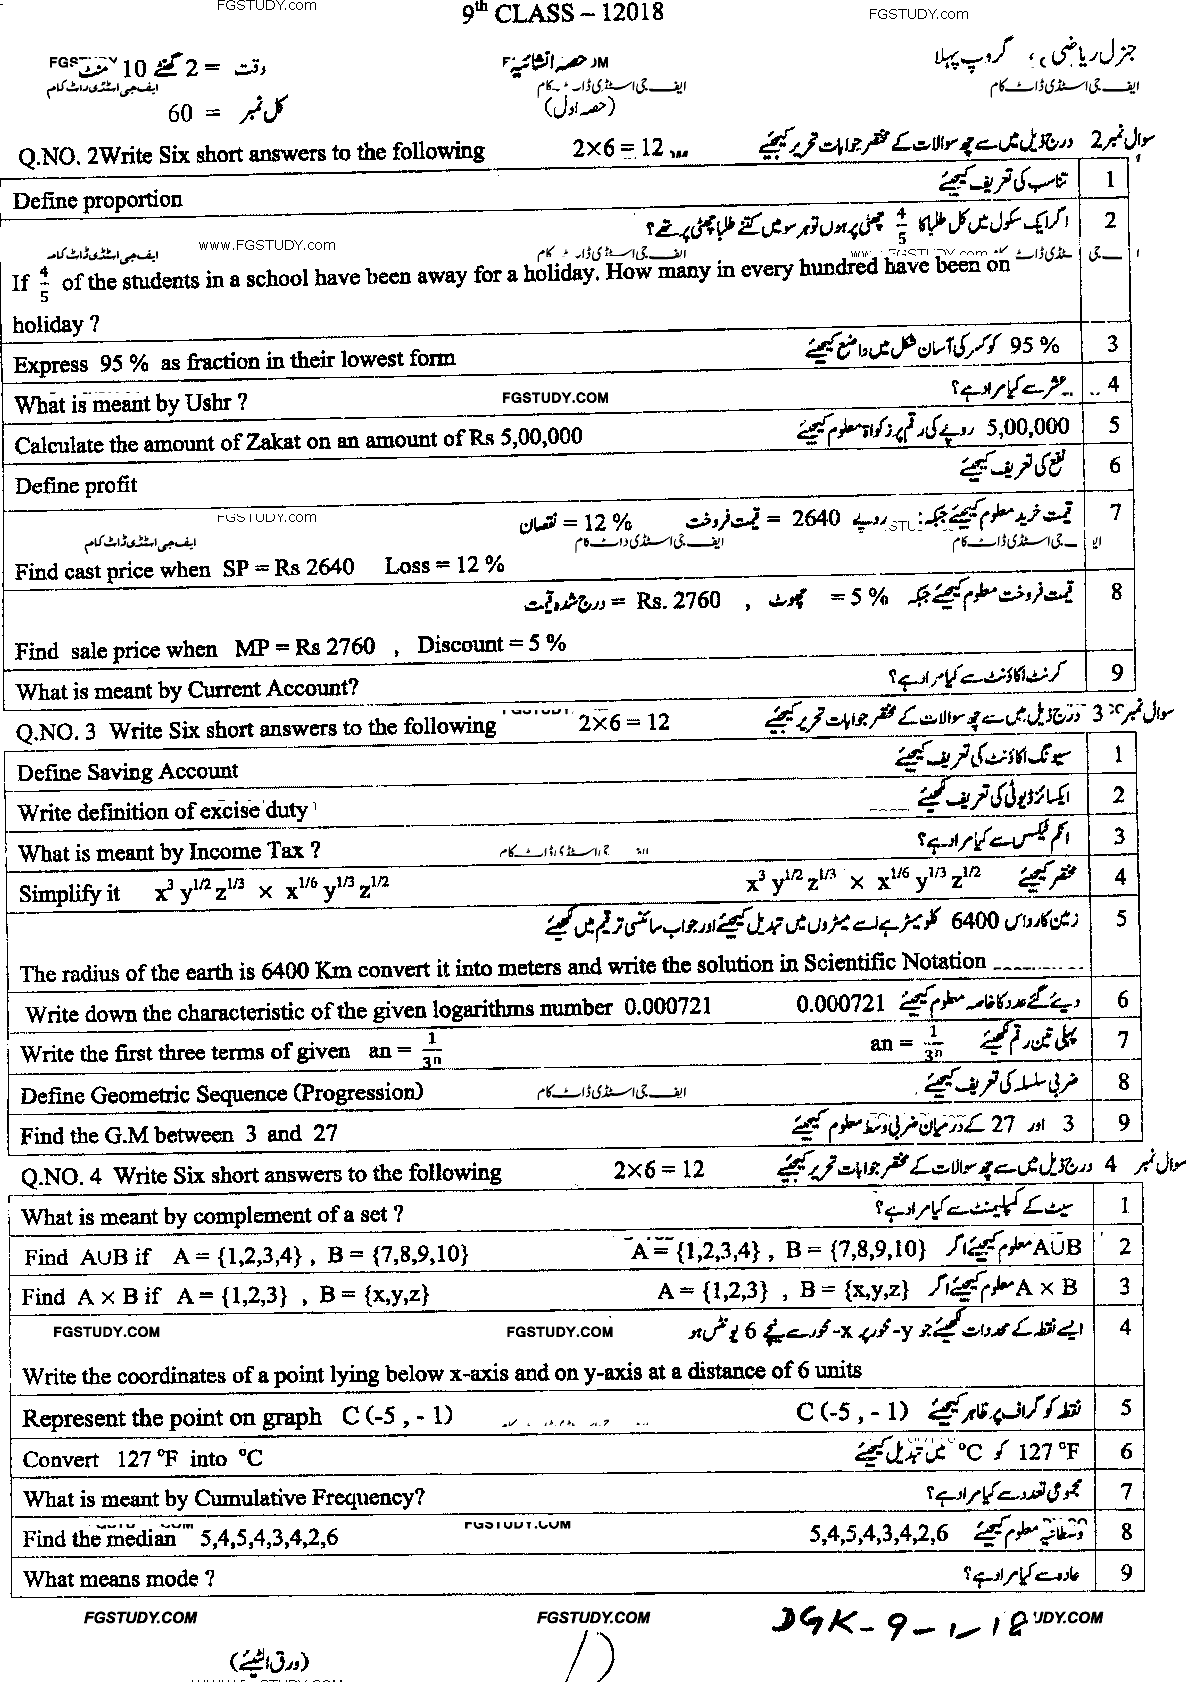 FGSTUDY.com
9th CLASS – 12018
FGSTUDY.com
جنرل ریاضی ، گروپ پہلا
حصہ انشائیہ
وقت = 2 گھنٹے 10 منٹ
ایف جی اسٹڈی ڈاٹ کام
ایف جی اسٹڈی ڈاٹ کام
ایف جی اسٹڈی ڈاٹ کام
(حصہ اول)
کل نمبر = 60
Q.NO. 2Write Six short answers to the following 2×6 = 12 درج ذیل میں سے چھ سوالات کے مختصر جوابات تحریر کیجیئے سوال نمبر 2
1 تناسب کی تعریف کیجیئے
Define proportion
2 اگر ایک سکول میں کل طلبا کا 4/5 چھٹی پر ہوں تو ہر سو میں کتنے طلبا چھٹی پر تھے؟
www.FGSTUDY.com
ایف جی اسٹڈی ڈاٹ کام
If 4/5 of the students in a school have been away for a holiday. How many in every hundred have been on
holiday ?
3 95 % کو کسر کی آسان شکل میں واضع کیجیئے
Express 95 % as fraction in their lowest form
4 عشر سے کیا مراد ہے؟
What is meant by Ushr ?
FGSTUDY.COM
5 5,00,000 روپے کی رقم پر زکواۃ معلوم کیجیئے
Calculate the amount of Zakat on an amount of Rs 5,00,000
6 نفع کی تعریف کیجیئے
Define profit
7 قیمت خرید معلوم کیجیئے جبکہ: روپے 2640 = قیمت فروخت نقصان = 12 %
FGSTUDY.com
ایف جی اسٹڈی ڈاٹ کام
ایف جی اسٹڈی ڈاٹ کام
Find cast price when SP = Rs 2640 Loss = 12 %
8 قیمت فروخت معلوم کیجیئے جبکہ چھوٹ = 5 % , درج شدہ قیمت = Rs. 2760
Find sale price when MP = Rs 2760 , Discount = 5 %
9 کرنٹ اکاؤنٹ سے کیا مراد ہے؟
What is meant by Current Account?
Q.NO. 3 Write Six short answers to the following 2×6 = 12 درج ذیل میں سے چھ سوالات کے مختصر جوابات تحریر کیجیئے سوال نمبر 3
1 سیونگ اکاؤنٹ کی تعریف کیجیئے
Define Saving Account
2 ایکسائز ڈیوٹی کی تعریف لکھیئے
Write definition of excise duty
3 انکم ٹیکس سے کیا مراد ہے؟
What is meant by Income Tax ?
4 مختصر کیجیئے x^3 y^1/2 z^1/3 × x^1/6 y^1/3 z^1/2
Simplify it x^3 y^1/2 z^1/3 × x^1/6 y^1/3 z^1/2
5 زمین کا رداس 6400 کلو میٹر ہے اسے میٹروں میں تبدیل کیجیئے اور جواب سائنسی ترقیم میں لکھیئے
The radius of the earth is 6400 Km convert it into meters and write the solution in Scientific Notation
6 دیئے گئے عدد کا خاصہ معلوم کیجیئے 0.000721
Write down the characteristic of the given logarithms number 0.000721
7 پہلی تین رقم لکھیئے an = 1/3^n
Write the first three terms of given an = 1/3^n
8 ضربی سلسلہ کی تعریف کیجیئے
Define Geometric Sequence (Progression)
ایف جی اسٹڈی ڈاٹ کام
9 3 اور 27 کے درمیان ضربی وسط معلوم کیجیئے
Find the G.M between 3 and 27
Q.NO. 4 Write Six short answers to the following 2×6 = 12 درج ذیل میں سے چھ سوالات کے مختصر جوابات تحریر کیجیئے سوال نمبر 4
1 سیٹ کے کمپلیمنٹ سے کیا مراد ہے؟
What is meant by complement of a set ?
2 AUB معلوم کیجیئے اگر A = {1,2,3,4} , B = {7,8,9,10}
Find AUB if A = {1,2,3,4} , B = {7,8,9,10}
3 A × B معلوم کیجیئے اگر A = {1,2,3} , B = {x,y,z}
Find A × B if A = {1,2,3} , B = {x,y,z}
4 ایسے نقطہ کے محددات لکھیئے جو y- محور پر x- محور سے نیچے 6 یونٹس ہو
FGSTUDY.COM
FGSTUDY.COM
Write the coordinates of a point lying below x-axis and on y-axis at a distance of 6 units
5 نقطہ کو گراف پر ظاہر کیجیئے C (-5 , - 1)
Represent the point on graph C (-5 , - 1)
6 127 °F کو °C میں تبدیل کیجیئے
Convert 127 °F into °C
7 مجموعی تعدد سے کیا مراد ہے؟
What is meant by Cumulative Frequency?
8 وسطانیہ معلوم کیجیئے 5,4,5,4,3,4,2,6
Find the median 5,4,5,4,3,4,2,6
FGSTUDY.COM
9 عادہ سے کیا مراد ہے؟
What means mode ?
FGSTUDY.COM
FGSTUDY.COM
DGK-9-1-18
(ورق الٹیئے)